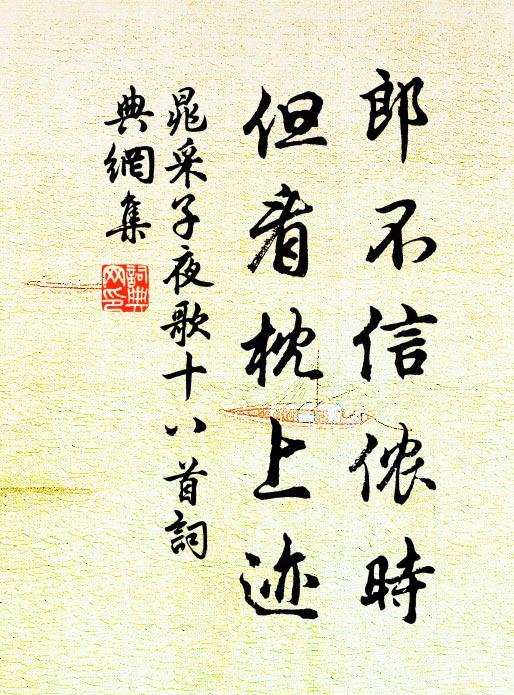 郎不信侬時
但看枕上迹
晁采子夜歌十八首詞
典網集
詞典網印